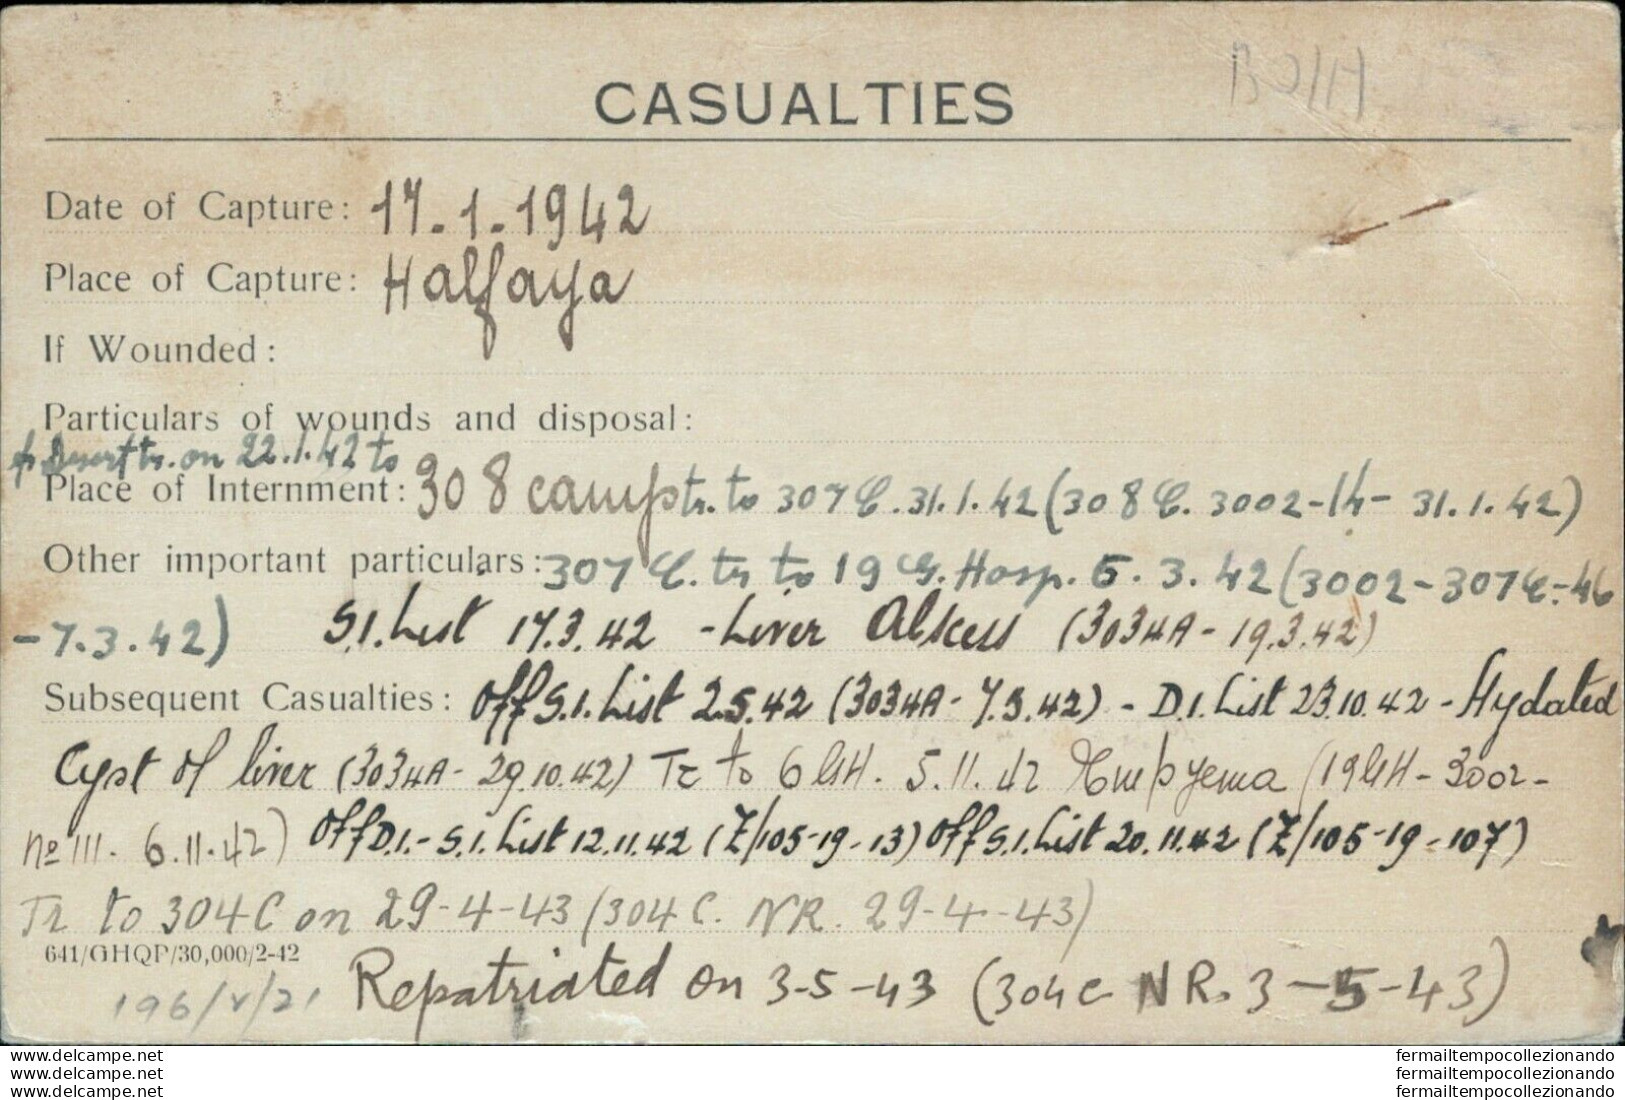 CASUALTIES
Date of Capture: 17.1.1942
Place of Capture: Halfaya
If Wounded:
Particulars of wounds and disposal:
fr Desert tr. on 22.1.42 to
Place of Internment: 308 camp tr. to 307 C. 31.1.42 (308 C. 3002-14- 31.1.42)
Other important particulars: 307 C. tr to 19 G. Hosp. 5.3.42 (3002-307C-46
-7.3.42) S.I. List 17.3.42 - Liver Abscess (3034A - 19.3.42)
Subsequent Casualties: Off S.I. List 2.5.42 (3034A - 7.5.42) - D.I. List 23.10.42 - Hydated
Cyst of liver (3034A - 29.10.42) Tr to 6 GH. 5.11.42 Empyema (19GH - 3002-
No 111. 6.11.42) Off D.I.- S.I. List 12.11.42 (Z/105-19-13) Off S.I. List 20.11.42 (Z/105-19-107)
Tr to 304C on 29-4-43 (304 C. NR. 29-4-43)
641/GHQP/30,000/2-42
196/V/21 Repatriated on 3-5-43 (304C NR. 3-5-43)
www.delcampe.net
www.delcampe.net
www.delcampe.net
fermailtempocollezionando
fermailtempocollezionando
fermailtempocollezionando